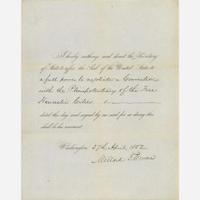 I hereby authorize and direct the Secretary
of State to affix the Seal of the United States to
a full power to negotiate a Convention
with the Plenipotentiary of the Free
Hanseatic Cities
dated this day and signed by me and for so doing this
shall be his warrant.
Washington 27th April, 1852
Millard Fillmore